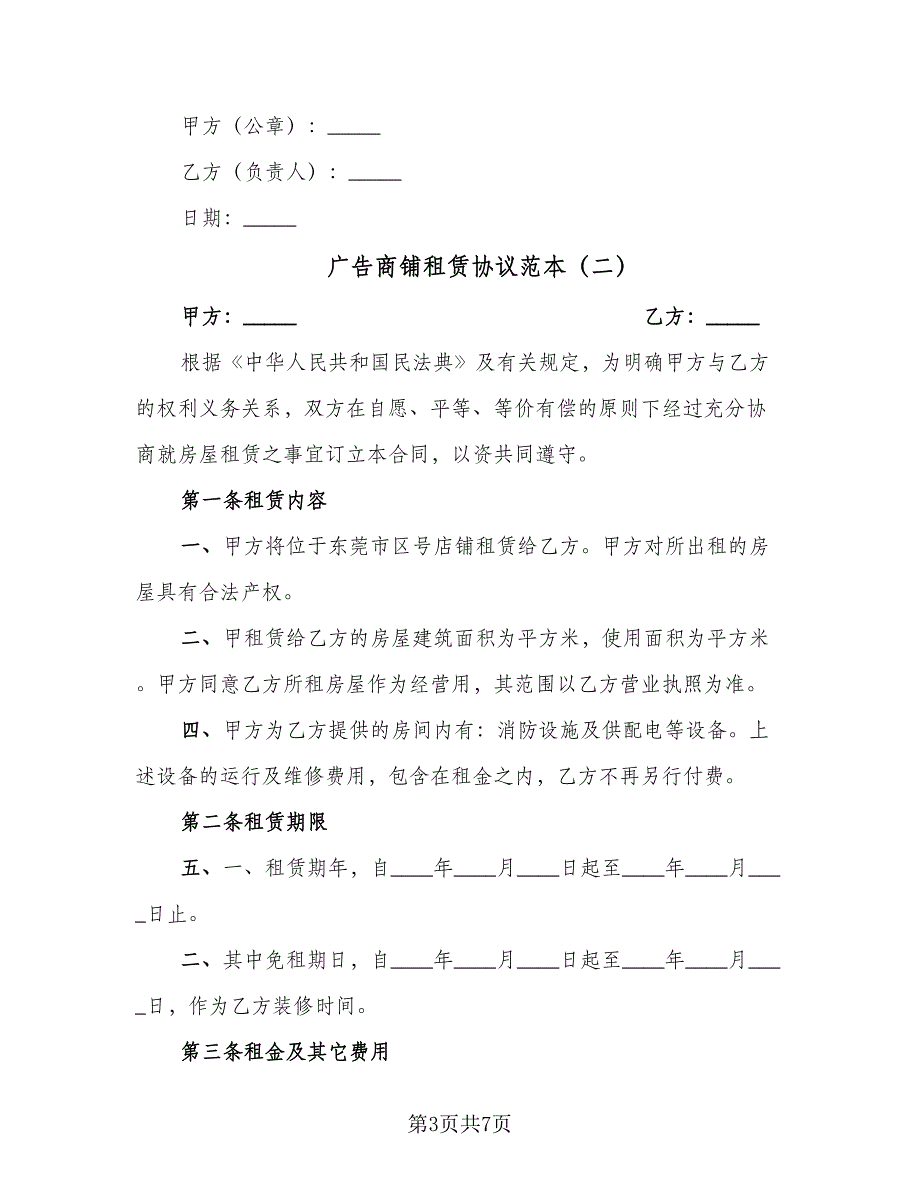 甲方（公章）：_____
乙方（负责人）：_____
日期：_____
广告商铺租赁协议范本（二）
甲方：_____ 乙方：_____
根据《中华人民共和国民法典》及有关规定，为明确甲方与乙方
的权利义务关系，双方在自愿、平等、等价有偿的原则下经过充分协
商就房屋租赁之事宜订立本合同，以资共同遵守。
第一条租赁内容
一、甲方将位于东莞市区号店铺租赁给乙方。甲方对所出租的房
屋具有合法产权。
二、甲租赁给乙方的房屋建筑面积为平方米，使用面积为平方米
。甲方同意乙方所租房屋作为经营用，其范围以乙方营业执照为准。
四、甲方为乙方提供的房间内有：消防设施及供配电等设备。上
述设备的运行及维修费用，包含在租金之内，乙方不再另行付费。
第二条租赁期限
五、一、租赁期年，自____年____月____日起至____年____月___
_日止。
二、其中免租期日，自____年____月____日起至____年____月___
_日，作为乙方装修时间。
第三条租金及其它费用
第3页共7页